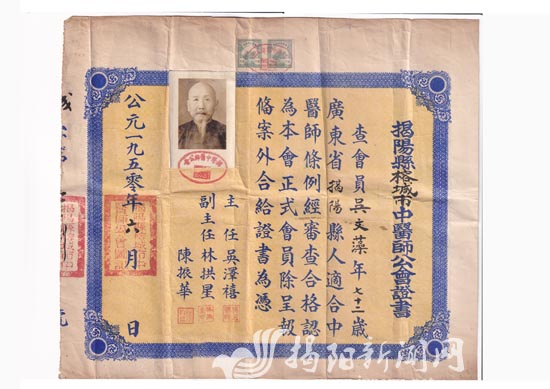 揭陽縣榕城市中醫師公會證書
查會員吳文藻年七十二歲
廣東省揭陽縣人適合中
醫師條例經審查合格認
為本會正式會員除呈报
俻案外合給證書為憑
主任吳澤禧
副主任林拱星
陳振華
公元一九五零年六月 日
揭阳新闻网